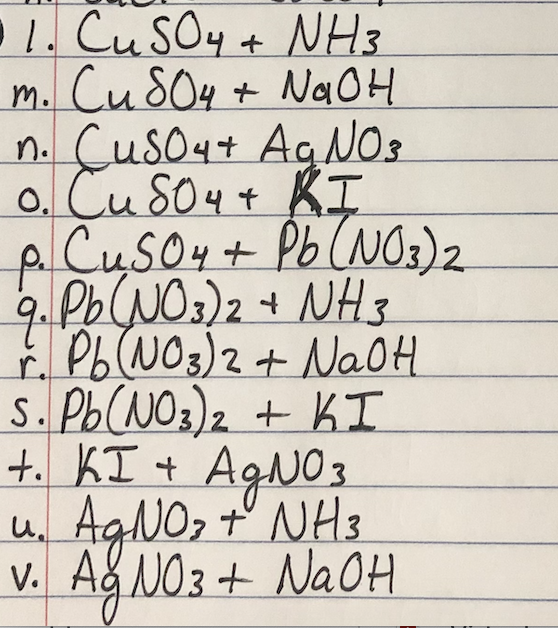 l. CuSO4 + NH3
m. CuSO4 + NaOH
n. CuSO4 + AgNO3
o. CuSO4 + KI
p. CuSO4 + Pb(NO3)2
q. Pb(NO3)2 + NH3
r. Pb(NO3)2 + NaOH
s. Pb(NO3)2 + KI
t. KI + AgNO3
u. AgNO3 + NH3
v. AgNO3 + NaOH